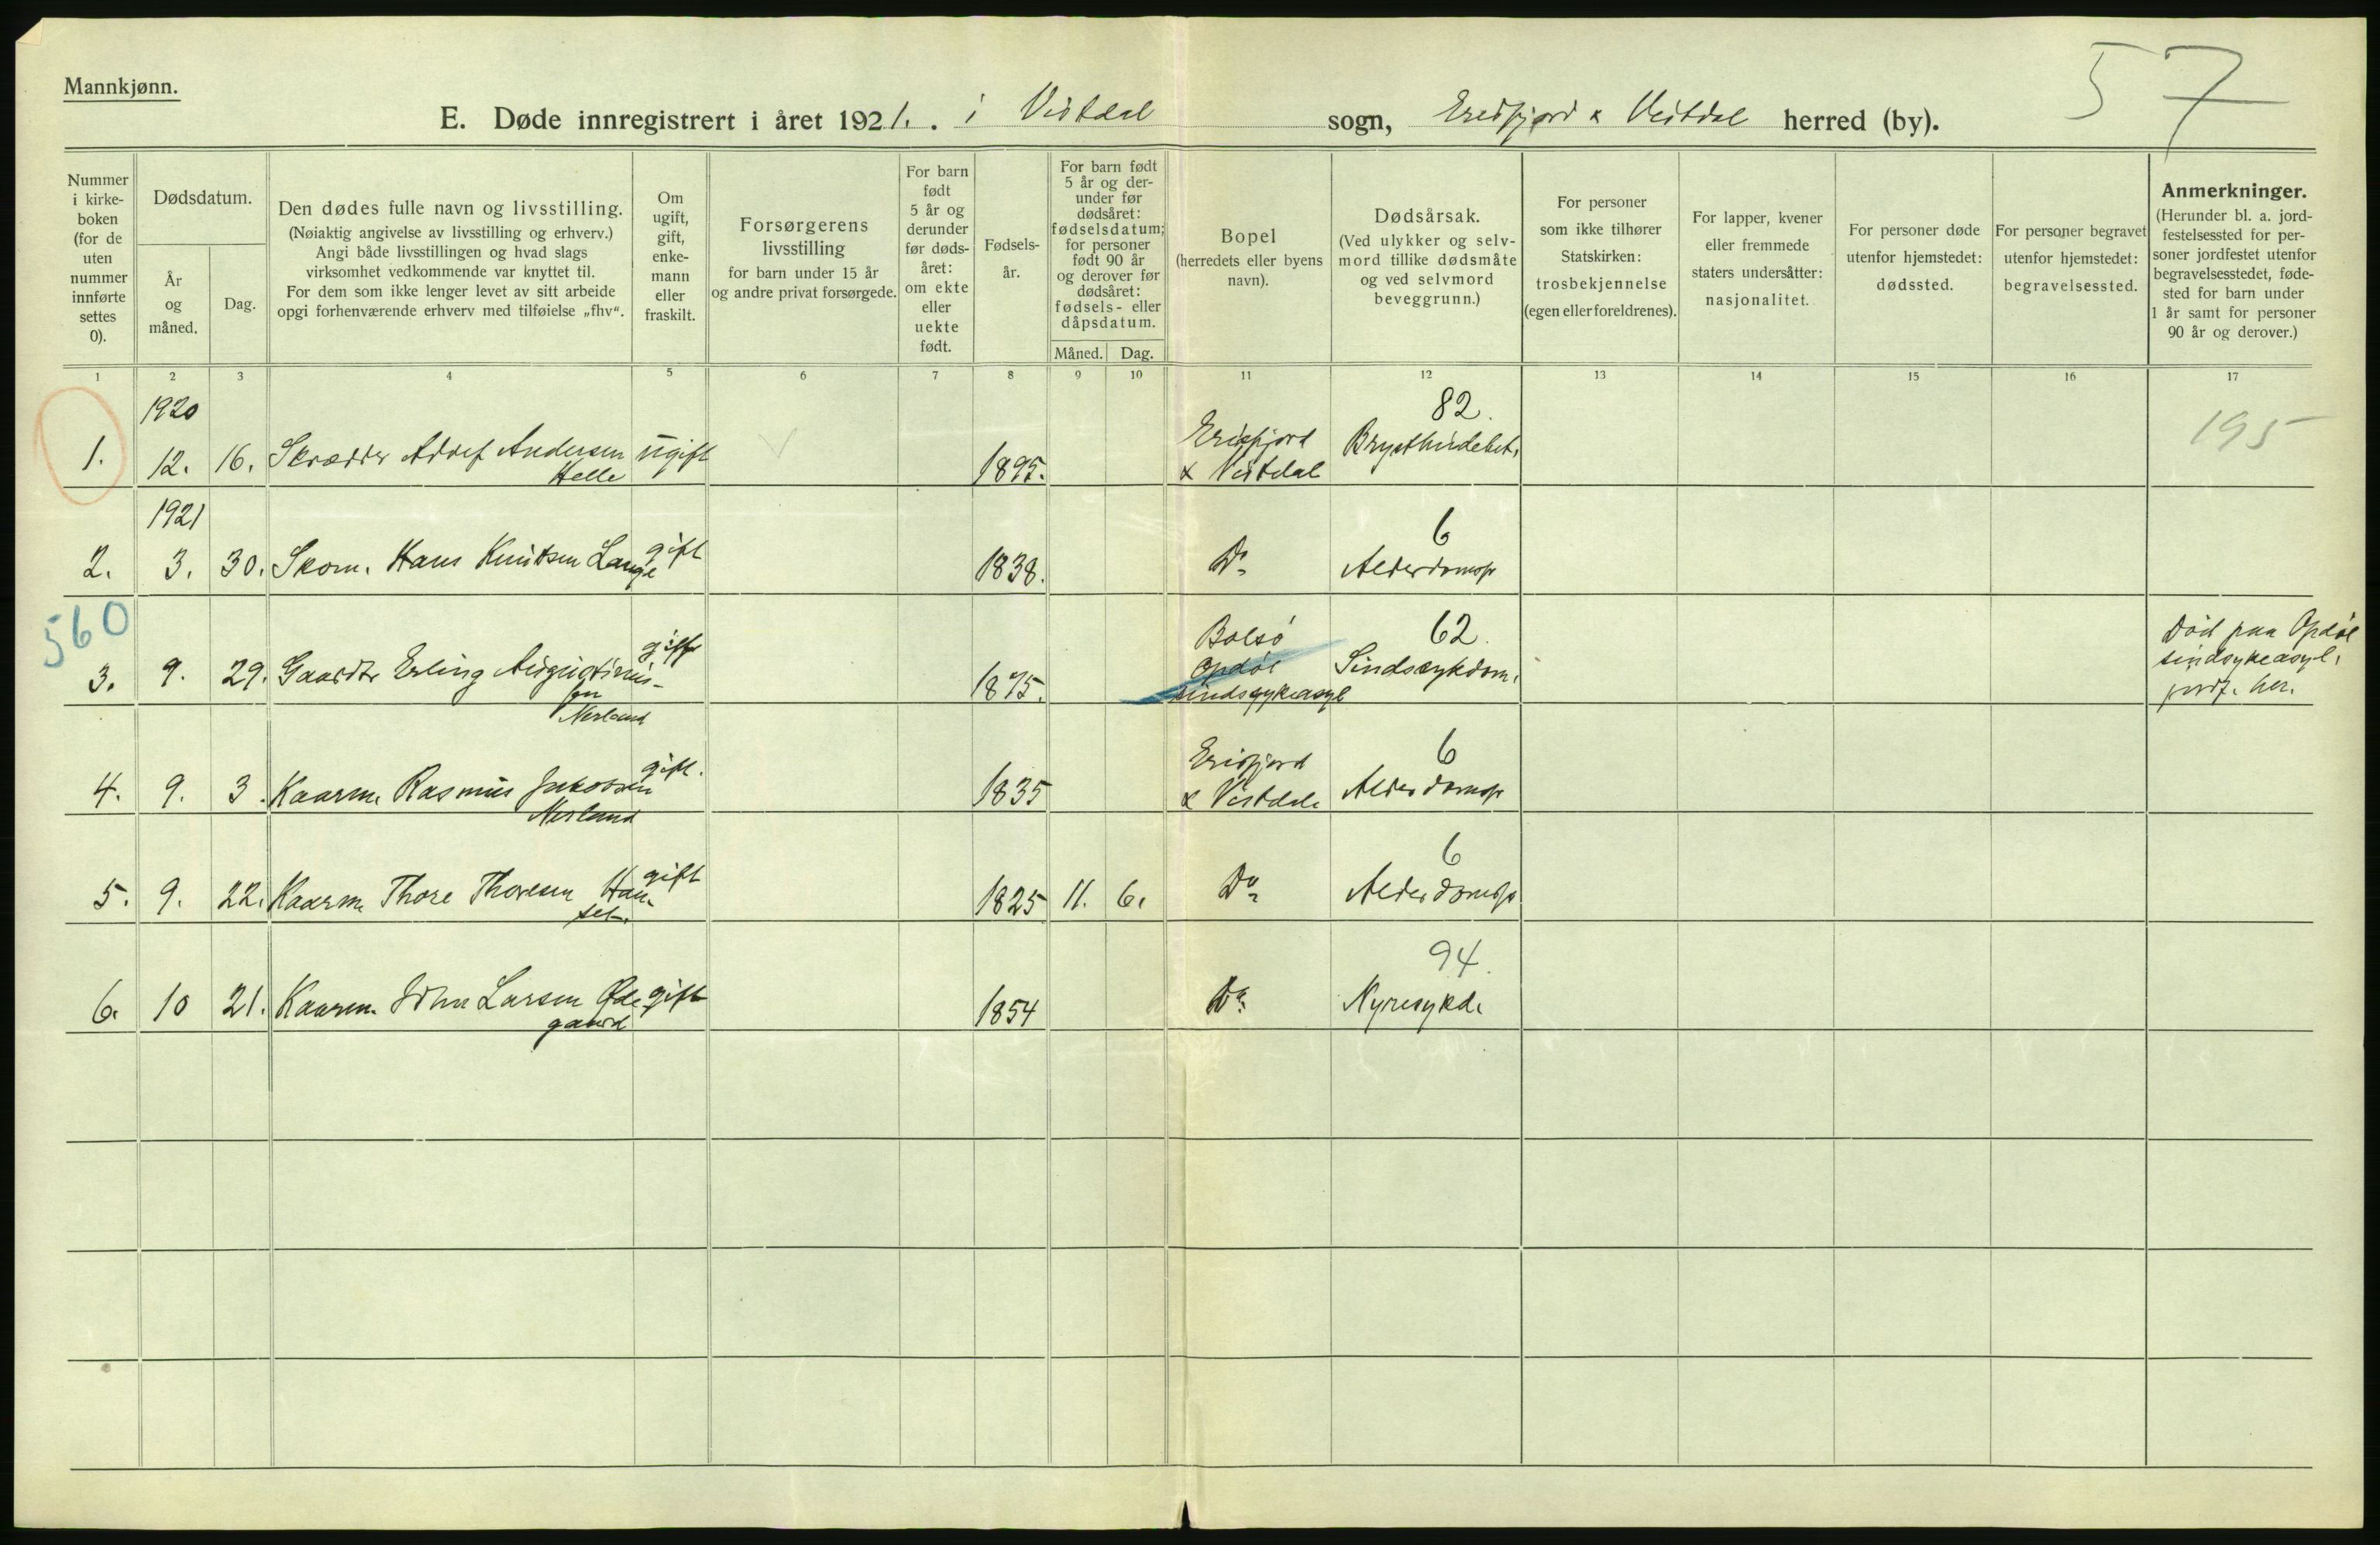 Mannkjønn.
57
E. Døde innregistrert i året 1921. i Vistdal sogn, Eresfjord & Vistdal herred (by).
Nummer i kirke-boken (for de uten nummer innførte settes 0).
Dødsdatum.
År og måned.
Dag.
Den dødes fulle navn og livsstilling.
(Nøiaktig angivelse av livsstilling og erhverv.)
Angi både livsstillingen og hvad slags
virksomhet vedkommende var knyttet til.
For dem som ikke lenger levet av sitt arbeide
opgi forhenværende erhverv med tilføielse „fhv“.
Om ugift, gift, enke-mann eller fraskilt.
Forsørgerens
livsstilling
for barn under 15 år
og andre privat forsørgede.
For barn født 5 år og derunder før døds-året: om ekte eller uekte født.
Fødsels-år.
For barn født 5 år og der-under før dødsåret: fødselsdatum; for personer født 90 år og derover før dødsåret: fødsels- eller dåpsdatum.
Måned. Dag.
Bopel
(herredets eller byens
navn).
Dødsårsak.
(Ved ulykker og selv-
mord tillike dødsmåte
og ved selvmord
beveggrunn.)
For personer
som ikke tilhører
Statskirken:
trosbekjennelse
(egen eller foreldrenes).
For lapper, kvener
eller fremmede
staters undersåtter:
nasjonalitet.
For personer døde
utenfor hjemstedet:
dødssted.
For personer begravet
utenfor hjemstedet:
begravelsessted.
Anmerkninger.
(Herunder bl. a. jord-
festelsessted for per-
soner jordfestet utenfor
begravelsesstedet, føde-
sted for barn under
1 år samt for personer
90 år og derover.)
1 2 3 4 5 6 7 8 9 10 11 12 13 14 15 16 17
1920 82.
1. 12. 16. Skrædder Adolf Andersen ugift 1895. Erisfjord Brysthindebet. 195
Helle & Vistdal
1921 6
2. 3. 30. Skom. Hans Knutsen Lange gift 1838. Do Alderdomss
560
Bolsø 62. Død paa Opdøl
3. 9. 29. Gaardbr Erling Augustinus- gift 1875. Opdøl Sindssykdom. sindsykeasyl.
sen sindssykeasyl jordf. her.
Nerland
Erisfjord 6
4. 9. 3. Kaarm. Rasmus Jakobsen gift. 1835 & Vistdal. Alderdomss
Nerland
6
5. 9. 22. Kaarm. Thore Thoresen Hau- gift 1825 11. 6. Do Alderdomss
set.
94.
6. 10 21. Kaarm. John Larsen Øde- gift 1854 Do Nyresykd.
gaard